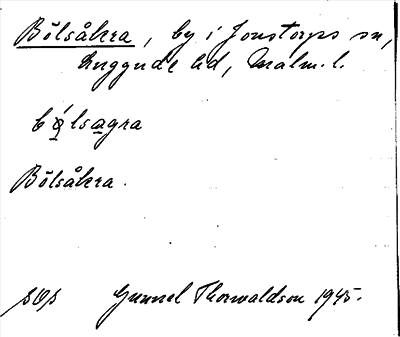 Bölsåkra, by i Jonstorps sn,
Luggude hd, Malm. l.
bǿlsagra
Bölsåkra.
SOS Gunnel Thorwaldson 1945.